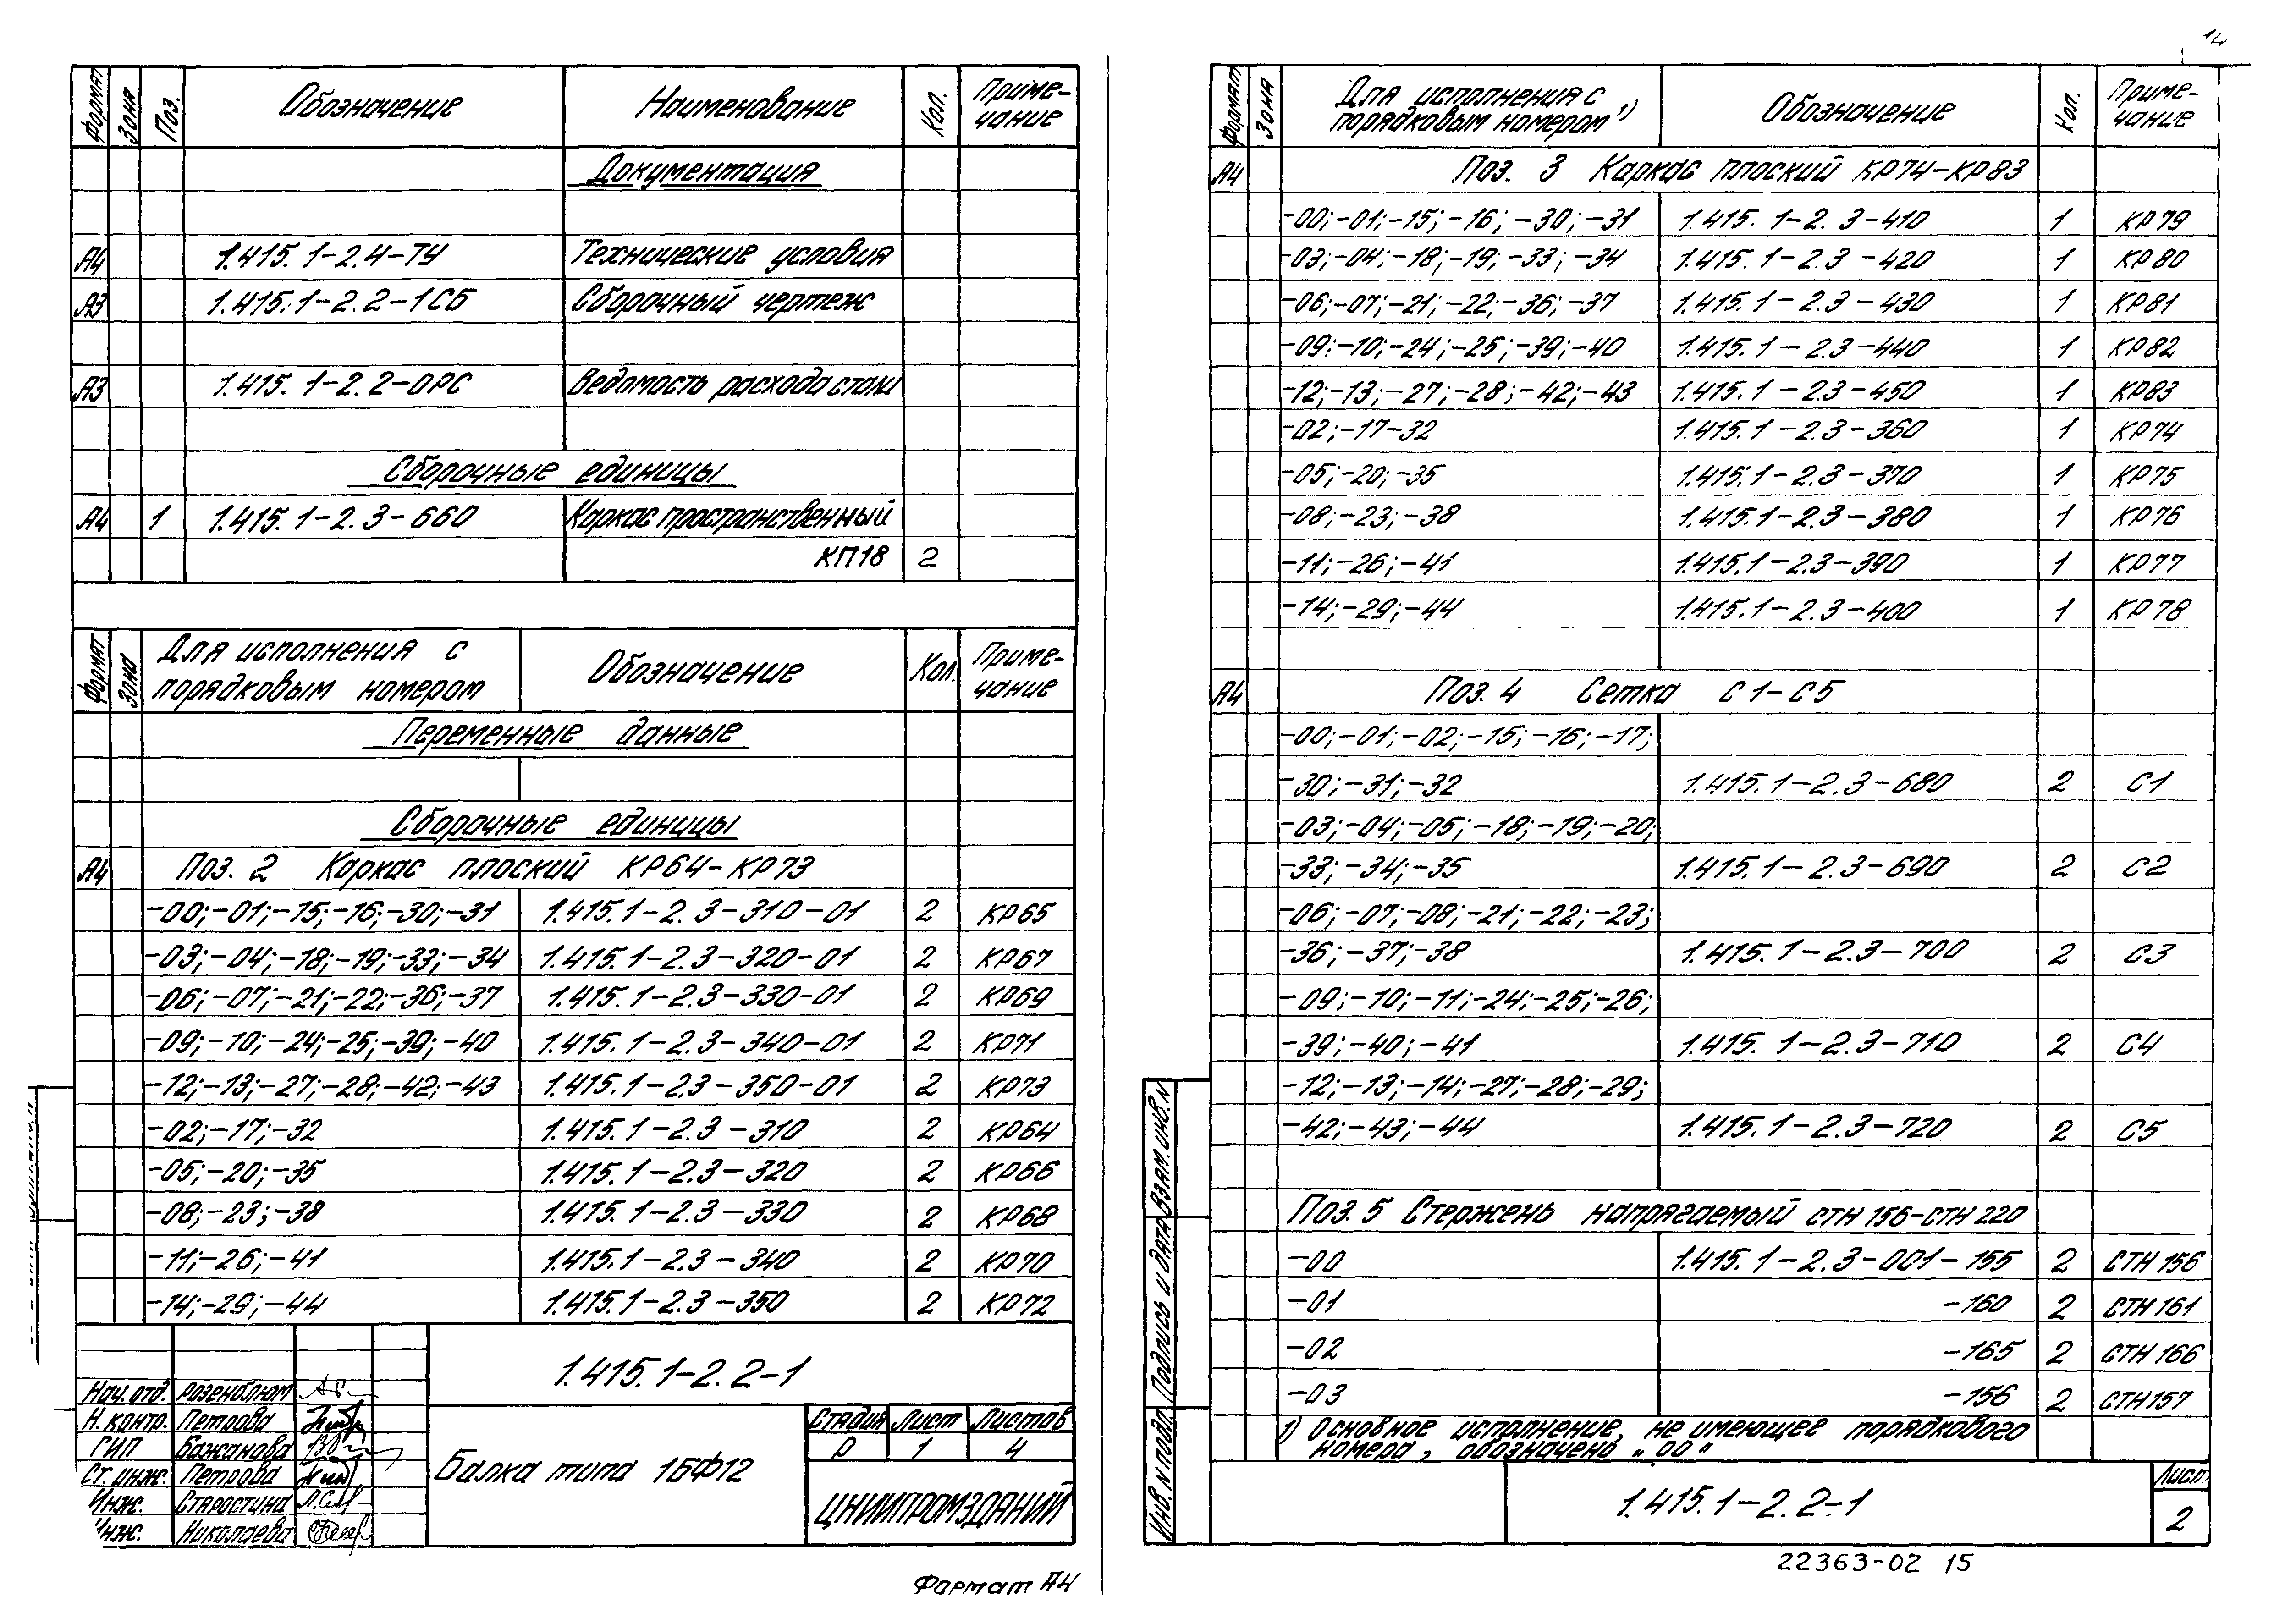 Формат Зона Поз. Обозначение Наименование Кол. Приме-
чание
Документация
А4 1.415.1-2.4-ТУ Технические условия
А3 1.415.1-2.2-1СБ Сборочный чертеж
А3 1.415.1-2.2-0РС Ведомость расхода стали
Сборочные единицы
А4 1 1.415.1-2.3-660 Каркас пространственный
КП18 2
Формат Зона Для исполнения с Обозначение Кол. Приме-
порядковым номером чание
Переменные данные
Сборочные единицы
А4 Поз. 2 Каркас плоский КР64-КР73
-00;-01;-15;-16;-30;-31 1.415.1-2.3-310-01 2 КР65
-03;-04;-18;-19;-33;-34 1.415.1-2.3-320-01 2 КР67
-06;-07;-21;-22;-36;-37 1.415.1-2.3-330-01 2 КР69
-09;-10;-24;-25;-39;-40 1.415.1-2.3-340-01 2 КР71
-12;-13;-27;-28;-42;-43 1.415.1-2.3-350-01 2 КР73
-02;-17;-32 1.415.1-2.3-310 2 КР64
-05;-20;-35 1.415.1-2.3-320 2 КР66
-08;-23;-38 1.415.1-2.3-330 2 КР68
-11;-26;-41 1.415.1-2.3-340 2 КР70
-14;-29;-44 1.415.1-2.3-350 2 КР72
1.415.1-2.2-1
Нач.отд. Розенблюм
Н.контр. Петрова
ГИП Бажанова
Ст.инж. Петрова
Инж. Старостина
Инж. Николаева
Балка типа 1БФ12
Стадия Лист Листов
Р 1 4
ЦНИИПРОМЗДАНИЙ
Формат А4
14
Формат Зона Для исполнения с Обозначение Кол. Приме-
порядковым номером 1) чание
А4 Поз. 3 Каркас плоский КР74-КР83
-00;-01;-15;-16;-30;-31 1.415.1-2.3-410 1 КР79
-03;-04;-18;-19;-33;-34 1.415.1-2.3-420 1 КР80
-06;-07;-21;-22;-36;-37 1.415.1-2.3-430 1 КР81
-09;-10;-24;-25;-39;-40 1.415.1-2.3-440 1 КР82
-12;-13;-27;-28;-42;-43 1.415.1-2.3-450 1 КР83
-02;-17-32 1.415.1-2.3-360 1 КР74
-05;-20;-35 1.415.1-2.3-370 1 КР75
-08;-23;-38 1.415.1-2.3-380 1 КР76
-11;-26;-41 1.415.1-2.3-390 1 КР77
-14;-29;-44 1.415.1-2.3-400 1 КР78
А4 Поз. 4 Сетка С1-С5
-00;-01;-02;-15;-16;-17;
-30;-31;-32 1.415.1-2.3-680 2 С1
-03;-04;-05;-18;-19;-20;
-33;-34;-35 1.415.1-2.3-690 2 С2
-06;-07;-08;-21;-22;-23;
-36;-37;-38 1.415.1-2.3-700 2 С3
-09;-10;-11;-24;-25;-26;
-39;-40;-41 1.415.1-2.3-710 2 С4
-12;-13;-14;-27;-28;-29;
-42;-43;-44 1.415.1-2.3-720 2 С5
Поз.5 Стержень напрягаемый СТН156-СТН220
-00 1.415.1-2.3-001-155 2 СТН156
-01 -160 2 СТН161
-02 -165 2 СТН166
-03 -156 2 СТН157
1) Основное исполнение, не имеющее порядкового
номера, обозначено „00"
Инв.N подл. Подпись и дата Взам.инв.N
1.415.1-2.2-1
Лист
2
22363-02 15